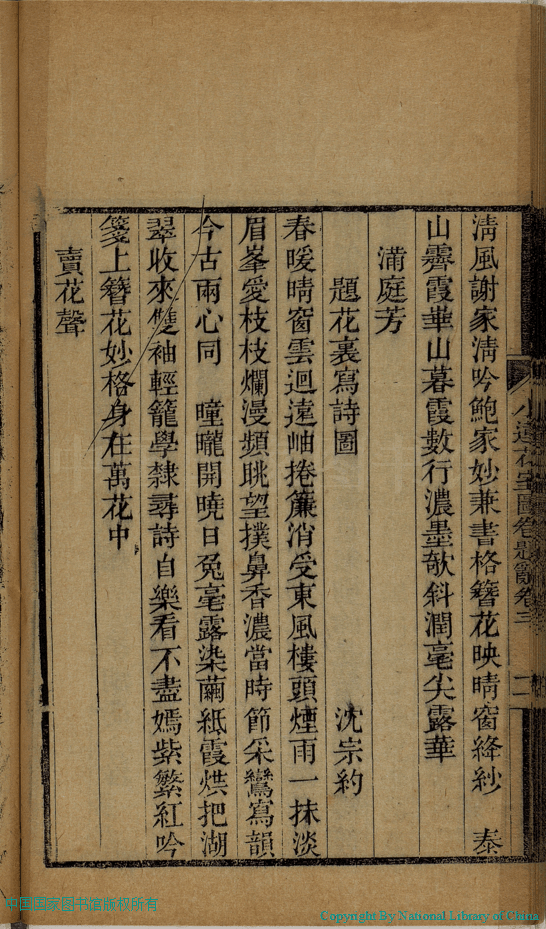 清風謝家淸吟鮑家妙兼書格簪花映晴窗絳紗　秦
山霽霞華山暮霞數行濃墨欹斜潤毫尖露華
滿庭芳
題花裏寫詩圖　沈宗約
春暖晴窗雲迴遠岫捲簾消受東風樓頭煙雨一抹淡
眉峯愛枝枝爛漫頻眺望撲鼻香濃當時節采鸞寫韻
今古兩心同　曈曨開曉日兔毫露染繭紙霞烘把湖
翠收來雙袖輕籠學隸尋詩自樂看不盡嫣紫繁紅吟
箋上簪花妙格身在萬花中
賣花聲
小蓮花室圖卷題辭卷三
二
中国国家图书馆版权所有
Copyright By National Library of China